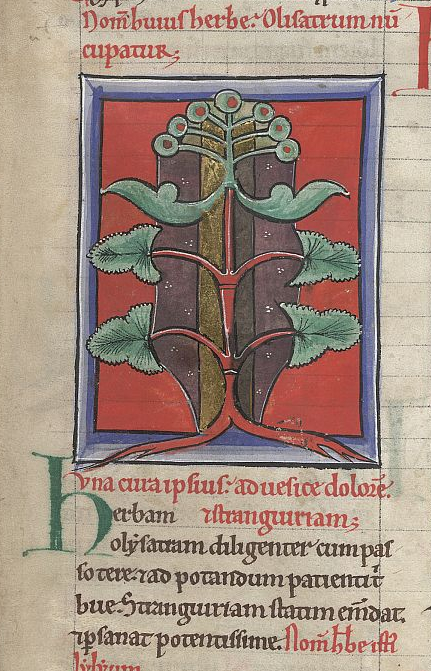 Nom̄ huius herbe: Olisatrum nū
cupatur;
Vna cura ipsius: ad uesice dolorē.
herbam ⁊stranguiriam;
olysatram diligenter cum pas
so tere: ⁊ad potandum patienti
bue. Stranguiriam statim em̄dat.
⁊psanat potentissime. Nom̄ hbe
lilyum